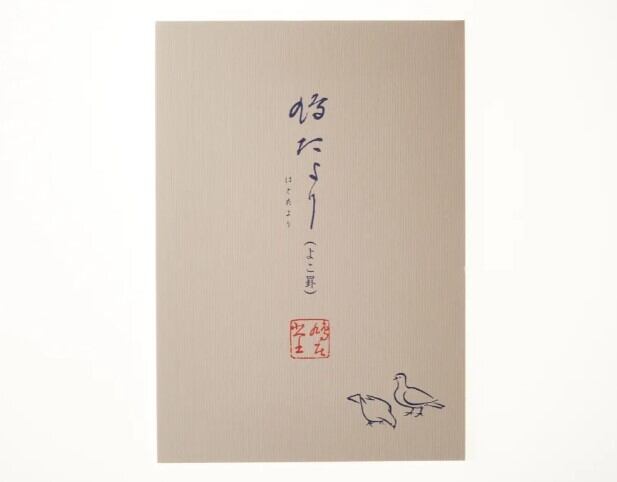 鳩たより
はとたより
(よこ罫)
鳩居